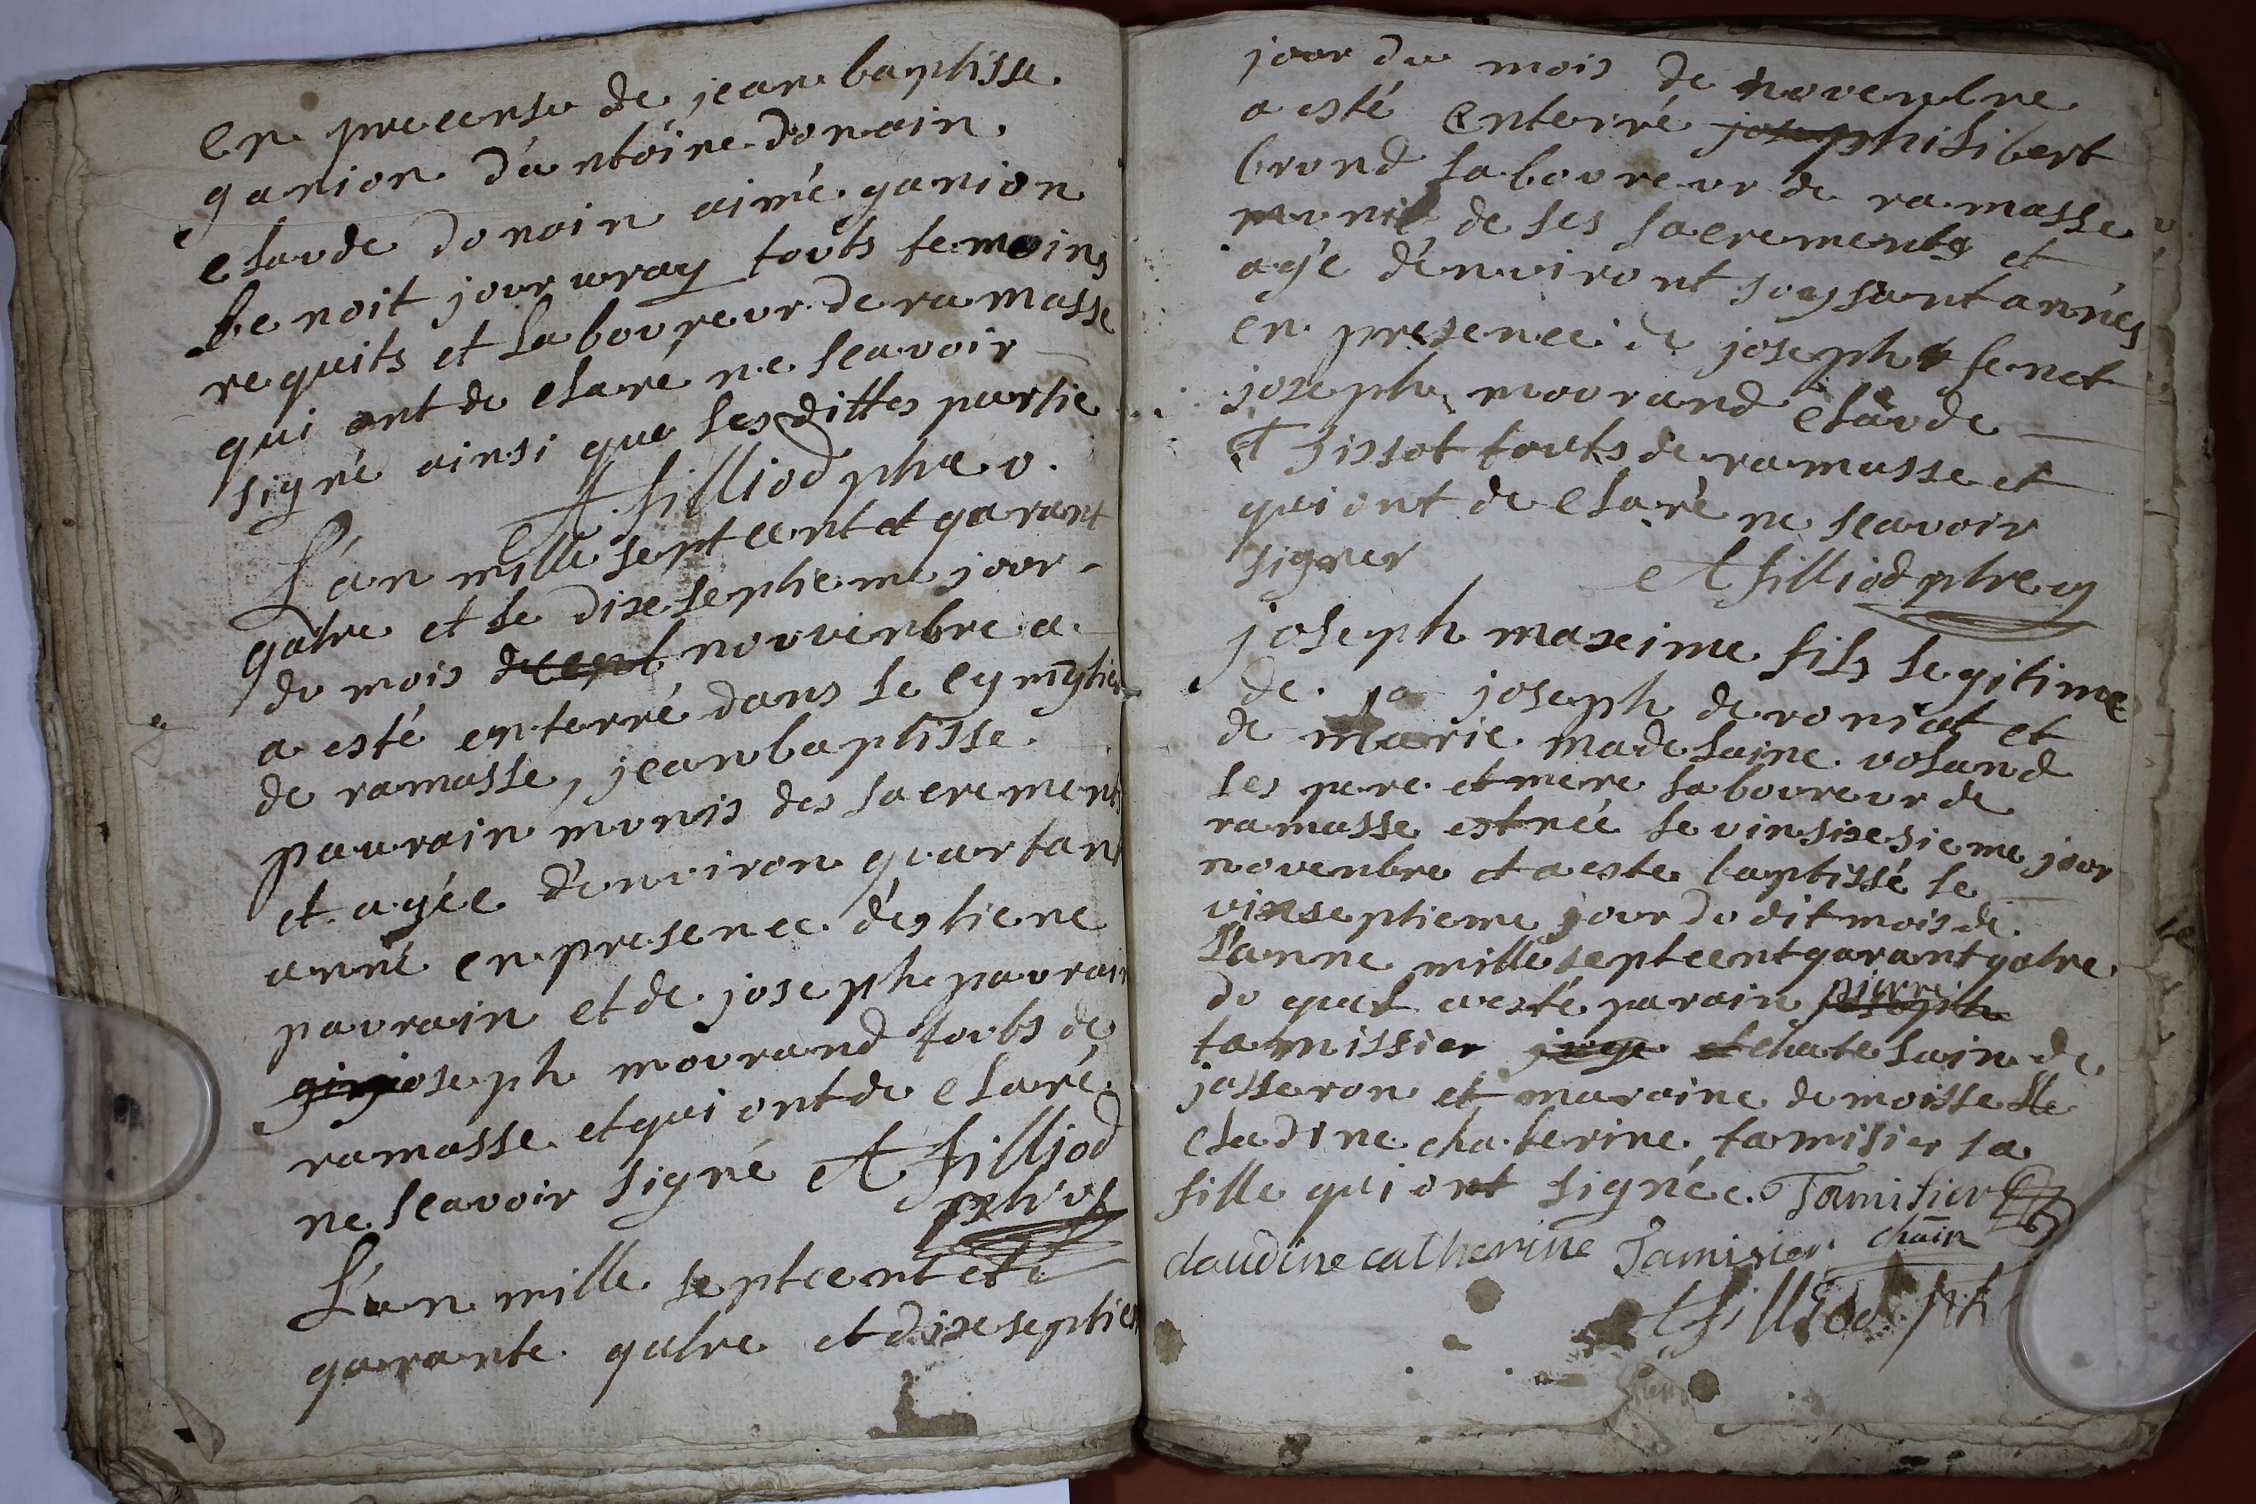 en precense de jean baptisse
ganion d'antoine donain
claude donain aimé ganion
benoit jourwray touts temoins
requits et laboureur de ramasse
qui ont de claré ne scavoir
signé ainsi que lesdittes partie
A filliod
L'an mille septcent et garant
gatre et le dixseptieme jour
du mois novvenbre a
a esté enterré dans le cymytier
de ramasse, jeanbaptisse
paurain munis des sacrement
et agée d'environ quartant
anné en presence d'estiene
paurain et de joseph paurain
joseph mourand touts de
ramasse et qui ont de claré
ne scavoir signé A filliod
L'an mille septcent et
garante gatre et dixseptiem
jour du mois de novenbre
a esté enterré philibert
brund laboureur de ramasse
munit de ses sacrements et
agé d'environt soyssantannés
en presence de joseph senet
joseph mourand claude
Tissot touts de ramasse et
qui ont de claré ne scavoir
signer A filliod
joseph maxime fils legitime
de joseph deroniat et
de marie madelaine voland
ses pere et mere laboureur de
ramasse est née le vinsixsieme jour
novenbre et a este baptissé le
vinseptieme jour du dit mois de
l'anne mille septcent garantgatre
du quel a esté parain pierre
tamissier chatelain de
jasseron et maraine demoisselle
cladine chaterine tamisier sa
fille qui ont signée. Tamisier
chain
claudine catherine Tamisier
A filliod